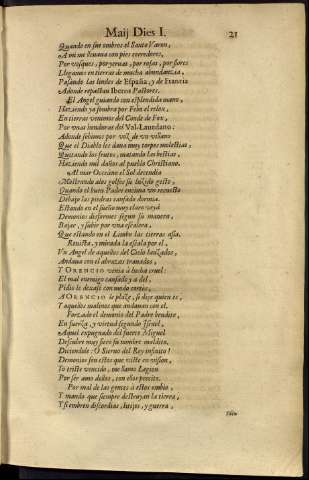 Maij Dies I. 21
Quando en sus ombros el Santo Varon,
A mi me lleuaua con pies corredores,
Por bosques, por yeruas, por rosas, por flores
Llegamos en tierras de mucha abundancia,
Passando las lindes de España, y de Francia
Adonde repastan Iberos Pastores.
El Angel guiando con esplendida mano,
Haziendo ya sombra por Febo el relox,
En tierras venimos del Conde de Fox,
Por vnas honduras del Val-Lauedano:
Adonde sobimos por vol, de vn villano
Que el Diablo les daua muy torpes molestias,
Quitando los frutos, matando las bestias,
Haziendo mil daños al pueblo Christiano.
Al mar Occeano el Sol decendia
Mostrando alos golfos su luzido gesto,
Quando el buen Padre encima vn recuesto
Debajo las piedras cansado dormia.
Estando en el sueño muy claro veya
Demonios disformes segun su manera,
Bajar, y subir por vna escalera,
Que estando en el Limbo las tierras asia.
Reuista, y mirada la escala por el,
Vn Angel de aquellos del Cielo baxados,
Andaua con el a braços trauados,
Y ORENCIO venia à lucha cruel:
El mal enemigo cansado y a del,
Pidio le dexasse con modo cortes,
A ORENCIO le plaze, si dize quien es,
Y aquellos malinos que andauan con el.
Forçado el demonio del Padre bendito,
En fuerça, y virtud segundo Israel,
Aquel expugnado del fuerte Miguel
Descubre muy fiero su nombre maldito.
Diziendole: O Sieruo del Rey infinito!
Demonios son estos que viste en vision,
Yo triste vencido, me llamo Legion
Por ser amo destos, con ellos precito.
Por mal de las gentes à estos embio,
Y mando que siempre destruyan la tierra,
Y siembren discordias, bxijos, y guerra,